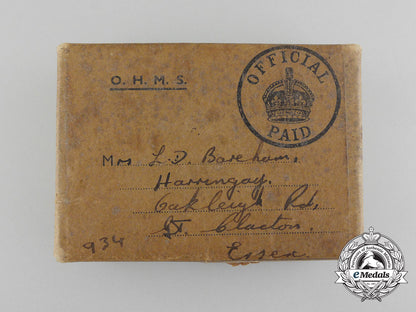 O. H. M. S.
OFFICIAL
PAID
Mrs L. D. Bareham,
Harringay,
Oakleigh Rd,
Gt. Clacton.
Essex.
934
eMedals